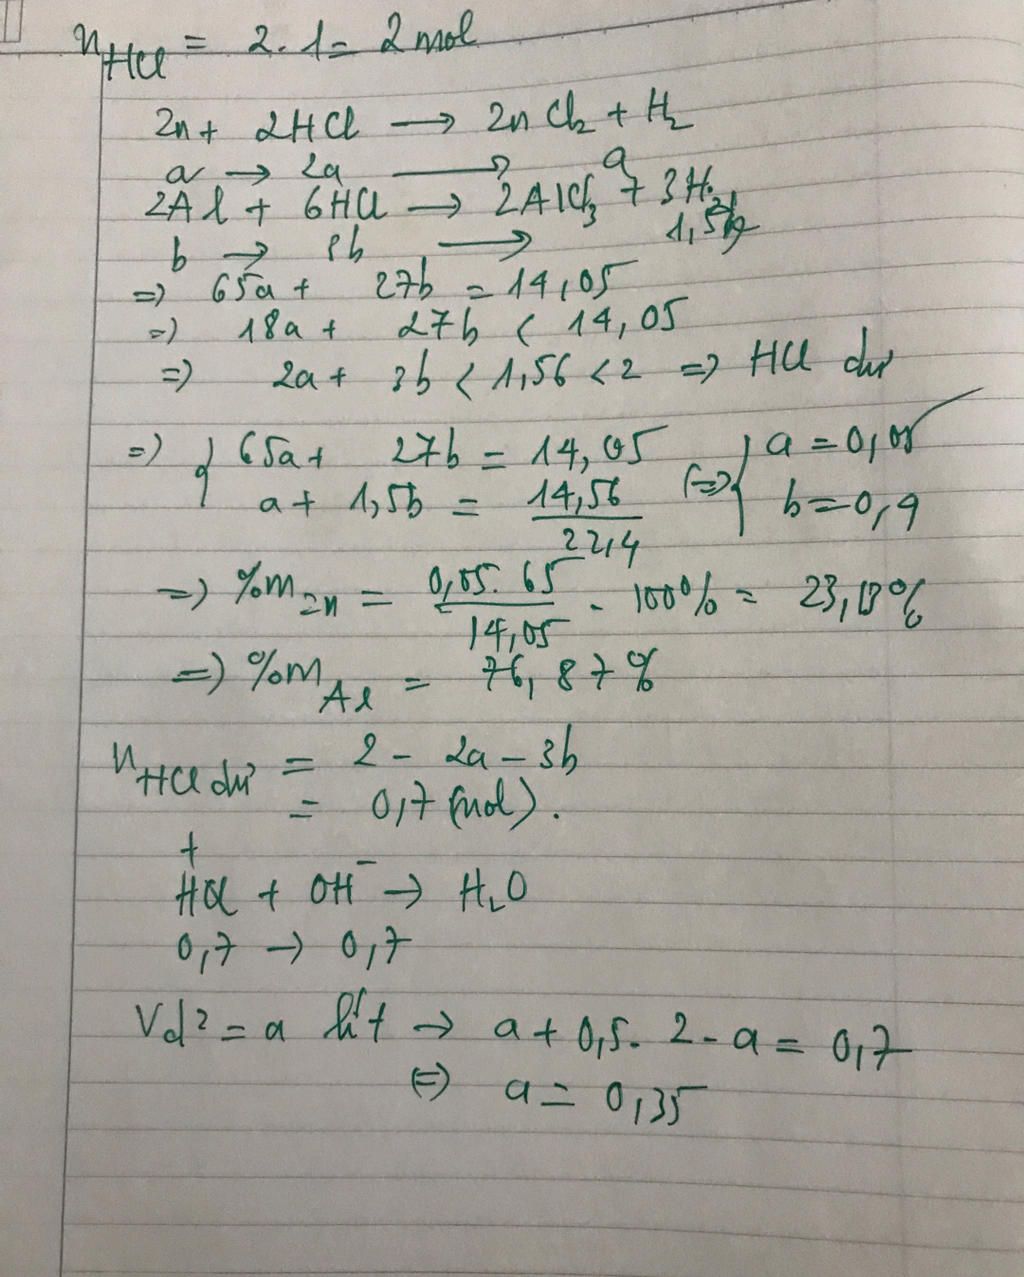 nHCl = 2. 1 = 2 mol
Zn + 2HCl → ZnCl2 + H2
a → 2a → a
2Al + 6HCl → 2AlCl3 + 3H2
b → 3b → 1,5b
=> 65a + 27b = 14,05
=> 18a + 27b < 14,05
=> 2a + 3b < 1,56 < 2 => HCl dư
=> { 65a + 27b = 14,05
a + 1,5b = 14,56 / 22,4
(=> { a = 0,05
b = 0,4
=> %mZn = 0,05. 65 / 14,05 . 100% = 23,13%
=> %mAl = 76,87%
nHCl dư = 2 - 2a - 3b
= 0,7 (mol).
+
HCl + OH⁻ → H2O
0,7 → 0,7
Vd² = a lít → a + 0,5. 2 - a = 0,7
(=) a = 0,35